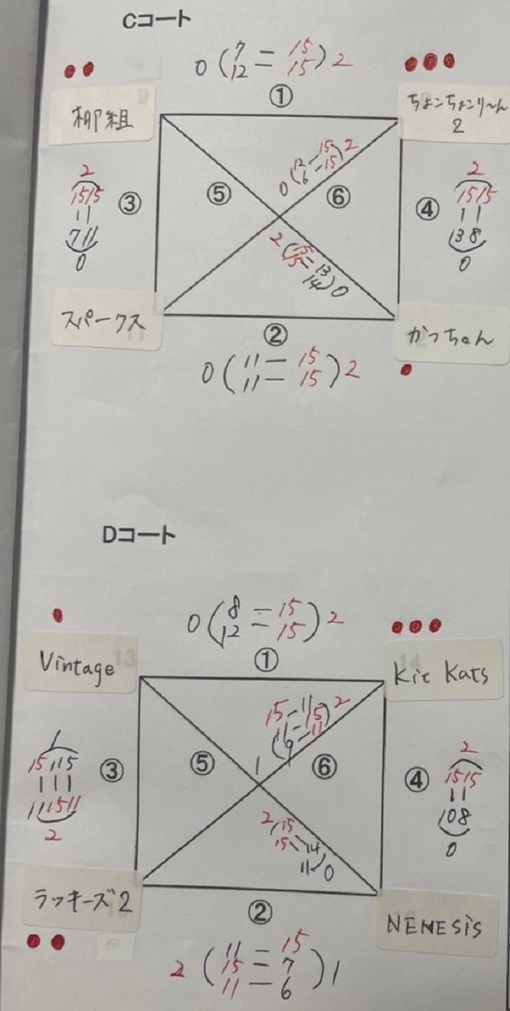 Cコート
0 ( 7 = 15 ) 2
12 = 15
①
柳組
ちょンちょンり〜ん
2
0 ( 12 - 15 ) 2
6 - 15
2
15 15
| |
7 11
0
③
⑤
⑥
④
2
15 15
| |
13 8
0
2 ( 15 - 13 ) 0
15 - 14
スパークス
②
かっちゃん
0 ( 11 = 15 ) 2
11 = 15
Dコート
0 ( 8 = 15 ) 2
12 = 15
①
Vintage 13
Kit Kats
15 - 11
1 ( 11 - 15 ) 2
9 - 11
1
15 11 5
| | |
11 15 11
2
③
⑤
⑥
④
2
15 15
| |
10 8
0
2 ( 15 - 14 ) 0
15 - 11
ラッキーズ2
②
NEMESIS
2 ( 11 = 15 ) 1
15 = 7
11 = 6